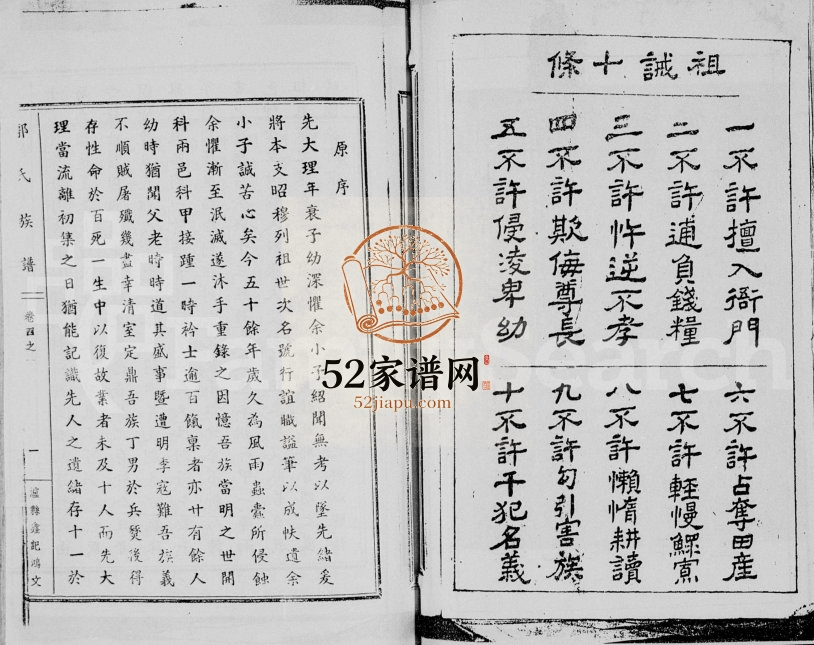 祖誡十條
一不許擅入衙門
二不許逋負錢糧
三不許忤逆不孝
四不許欺侮尊長
五不許侵凌卑幼
六不許占奪田產
七不許輕慢鰥寡
八不許懶惰耕讀
九不許勾引害族
十不許干犯名義
原序
先大理年衰子幼深懼余小子紹聞無考以墜先緒爰
將本支昭穆列祖世次名號行誼職謚筆以成帙遺余
小子誠苦心矣今五十餘年歲久為風雨蟲蠹所侵蝕
余懼漸至泯滅遂沐手重錄之因憶吾族當明之世開
科兩邑科甲接踵一時衿士逾百餼稟者亦廿有餘人
幼時猶聞父老時時道其盛事暨遭明季寇難吾族義
不順賊屠殲幾盡幸清室定鼎吾族丁男於兵燹後得
存性命於百死一生中以復故業者未及十人而先大
理當流離初集之日猶能記識先人之遺緒存十一於
氏族譜
卷四之
一
瀘縣鑫記鴻文
52家谱网
52jiapu.com
Search